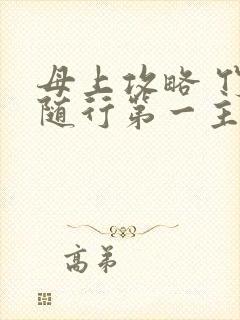 母上攻略
随行第一主
高弟